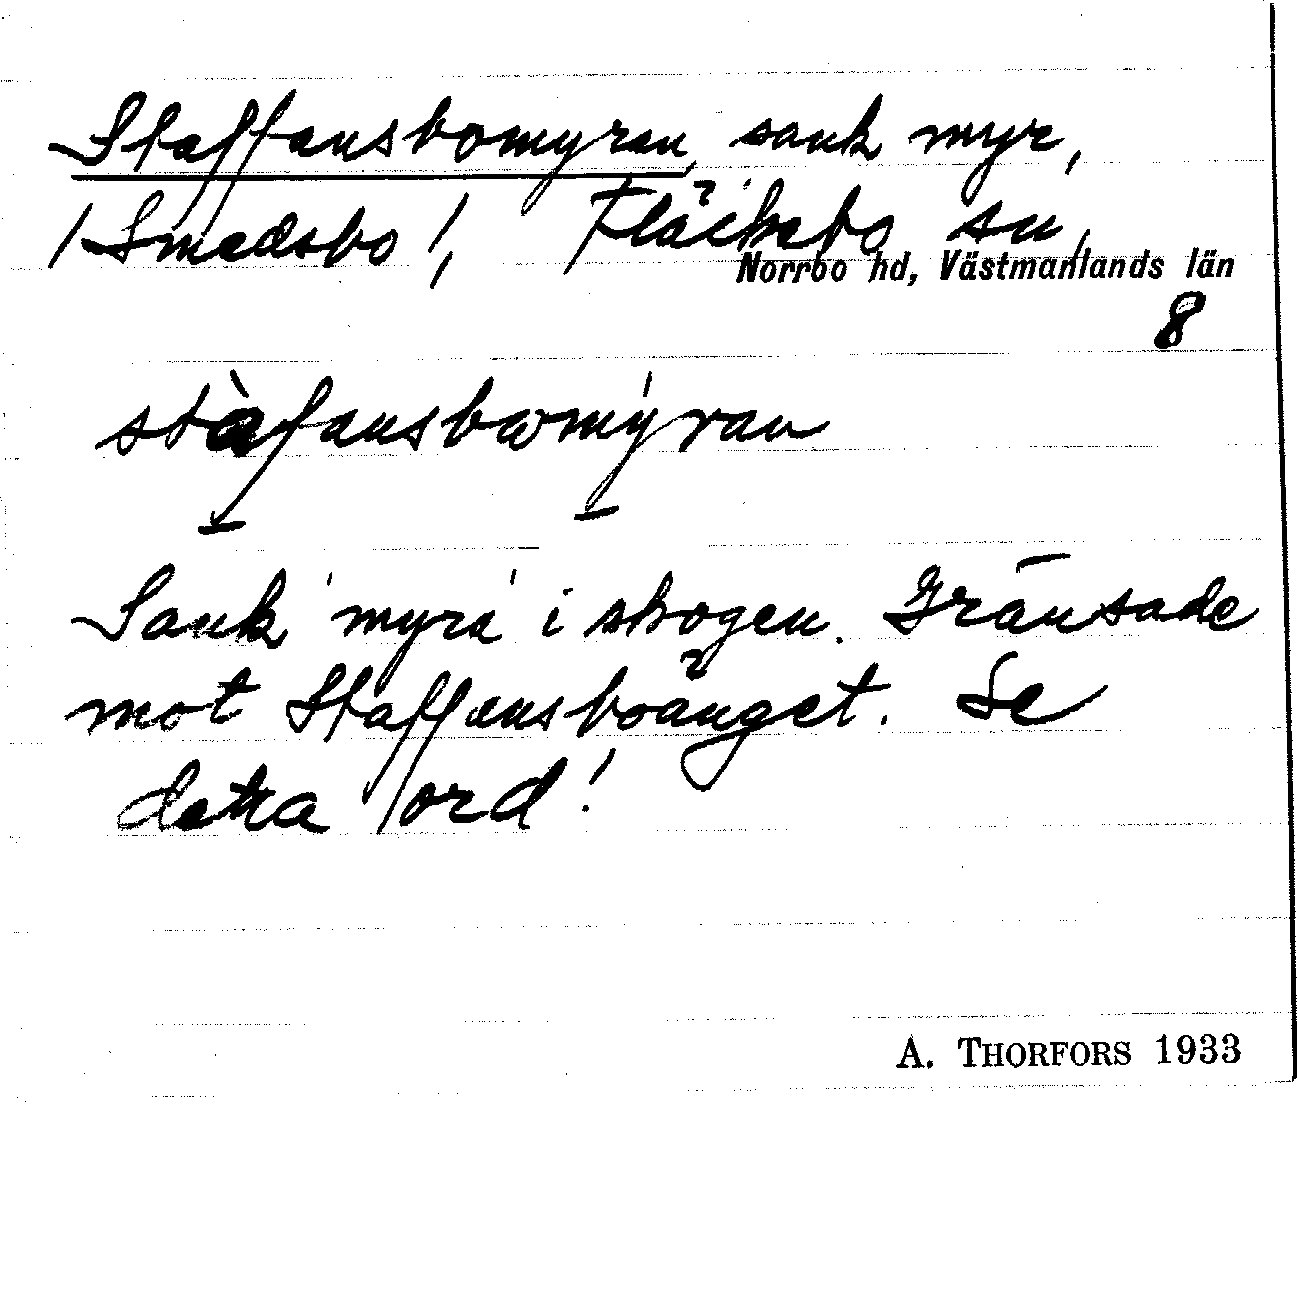 Staffansbomyran, sank myr,
/Smedsbo/, Fläckebo sn,
Norrbo hd, Västmanlands län
8
stàfansbωmýran
Sank 'myra' i skogen. Gränsade
mot Staffansboänget. Se
detta ord!
A. THORFORS 1933